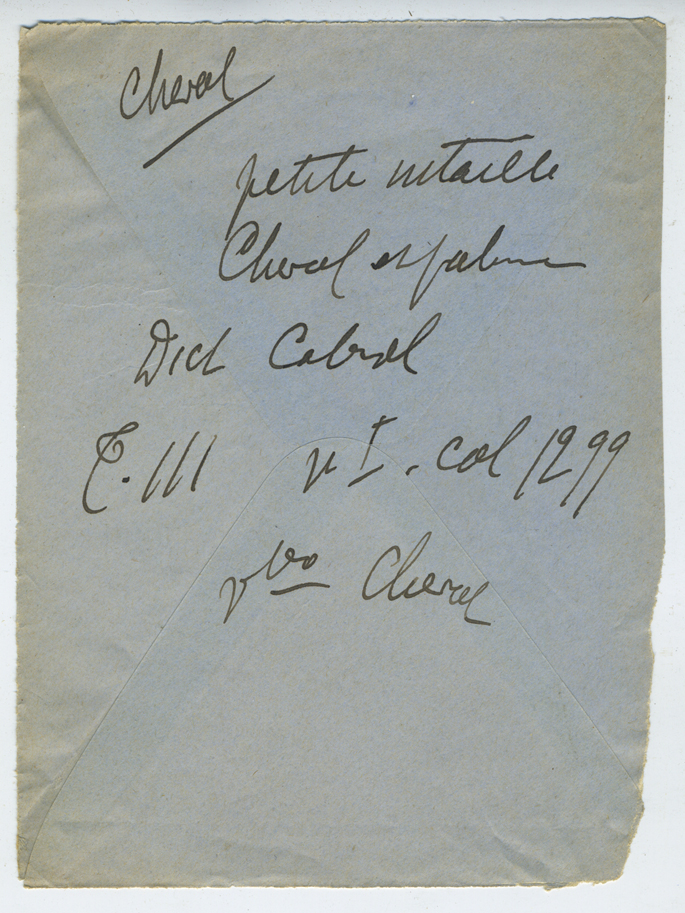 Cheval
petite entaille
Cheval et palme
Dict Cabrol
T. III p I. col 1299
vbo Cheval